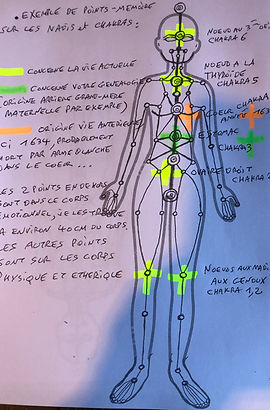 • EXEMPLE DE POINTS-MÉMOIRE
SUR LES NADIS ET CHAKRAS:
CONCERNE LA VIE ACTUELLE
CONCERNE VOTRE GÉNÉALOGIE
ORIGINE ARRIÈRE GRAND-MÈRE
MATERNELLE PAR EXEMPLE)
ORIGINE VIE ANTERIEURE
ICI 1634, PROBABLEMENT
MORT PAR ARME BLANCHE
DANS LE COEUR...
LES 2 POINTS EN DEHORS
SONT DANS LE CORPS
ÉMOTIONNEL, JE LES TROUVE
À ENVIRON 40CM DU CORPS.
LES AUTRES POINTS
SONT SUR LES CORPS
PHYSIQUE ET ETHERIQUE
NOEUD AU 3ème
CHAKRA 6
NOEUD A LA
THYROÏDE
CHAKRA 5
COEUR CHAKRA
ANNÉE 163
ESTOMAC
CHAKRA 3
OVAIRE DROIT
CHAKRA
NOEUDS AUX NADIS
AUX GENOUX
CHAKRA 1,2